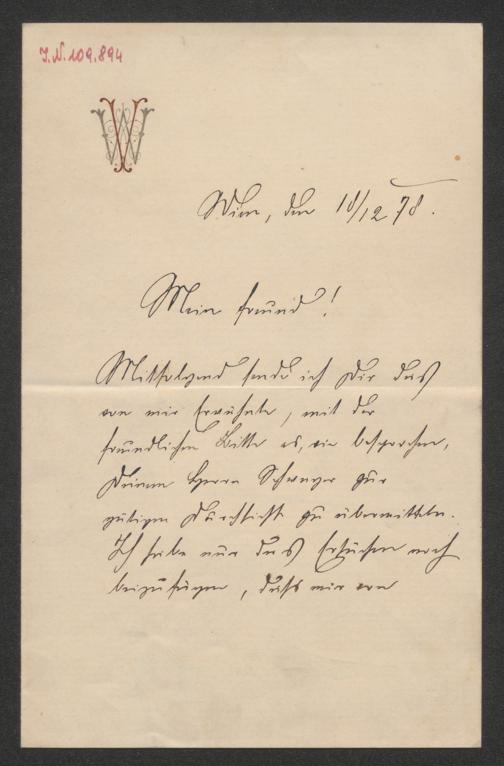 I.N. 109.894
W
Wien, den 18/12 78.
Mein Freund!
Mitfolgend sende ich Dir das
von mir Erwähnte, mit der
freundlichen Bitte es, wie besprochen,
Deinem Herrn Schwager zur
gütigen Durchsicht zu übermitteln.
Ich habe nur das Ersuchen noch
beizufügen, dass mir von